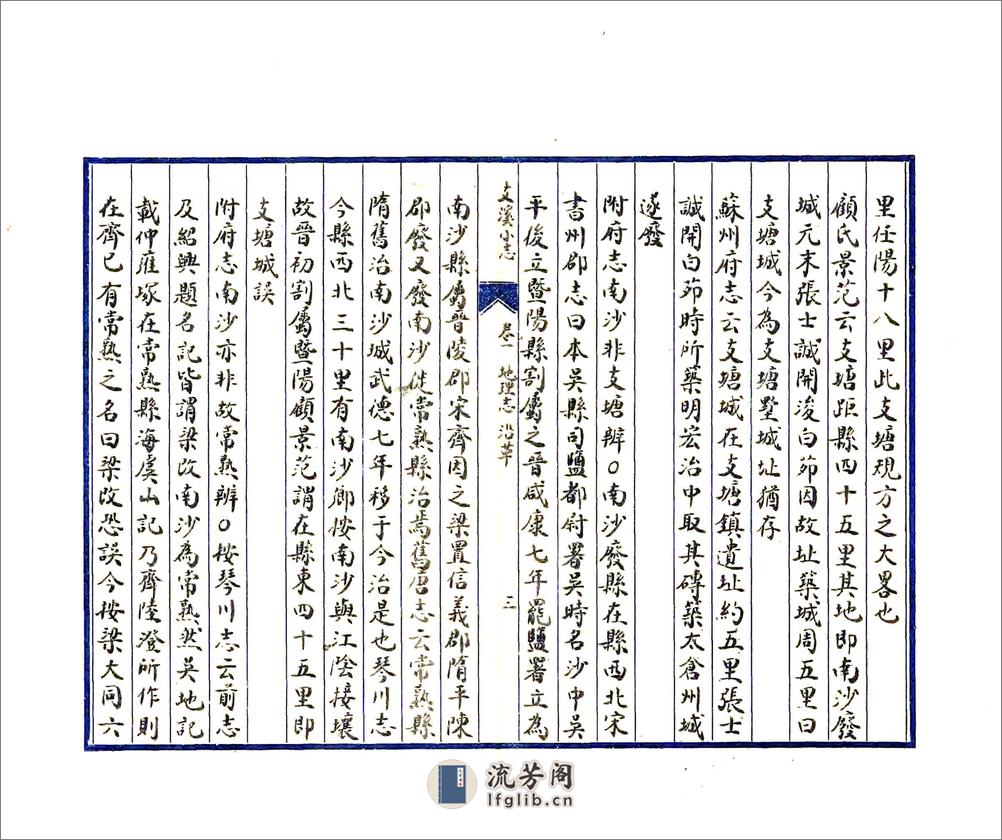 里任陽十八里此支塘規方之大畧也
顧氏景范云支塘距縣四十五里其地即南沙廢
城元末張士誠開浚白茆因故址築城周五里曰
支塘城今為支塘墅城址猶存
蘇州府志云支塘城在支塘鎮遺址約五里張士
誠開白茆時所築明宏治中取其磚築太倉州城
遂廢
附府志南沙非支塘辨○南沙廢縣在縣西北宋
書州郡志曰本吳縣司鹽都尉署吳時名沙中吳
平後立暨陽縣割屬之晉咸康七年罷鹽署立為
支溪小志 卷一 地理志 沿革 三
南沙縣屬晉陵郡宋齊因之梁置信義郡隋平陳
郡廢又廢南沙徙常熟縣治焉舊唐志云常熟縣
隋舊治南沙城武德七年移于今治是也琴川志
今縣西北三十里有南沙鄉按南沙與江陰接壤
故晉初割屬暨陽顧景范謂在縣東四十五里即
支塘城誤
附府志南沙亦非故常熟辨○按琴川志云前志
及紹興題名記皆謂梁改南沙為常熟然吳地記
載仲雍塚在常熟縣海虞山記乃齊陸澄所作則
在齊已有常熟之名曰梁改恐誤今按梁大同六
流芳阁
lfglib.cn